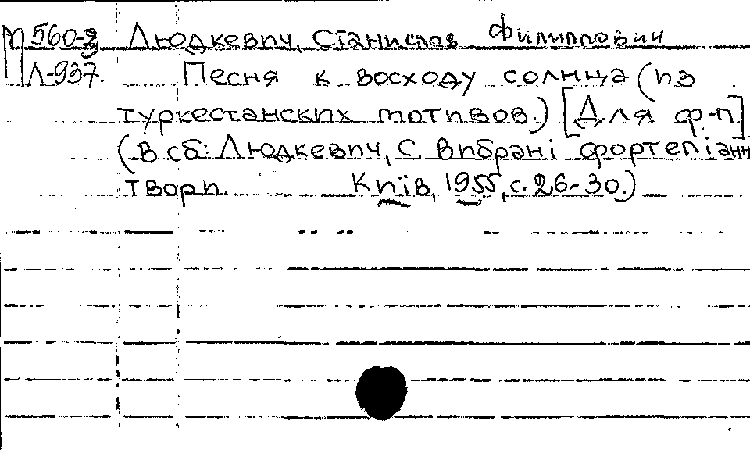 П 560-2 Людкевич, Станислав Филиппович
Л-937. Песня к восходу солнца (из
туркестанских мотивов.) [Для ф-п]
(В сб: Людкевич, С. Вибрані фортепіанн
твори. Київ, 1955, с. 26-30.)